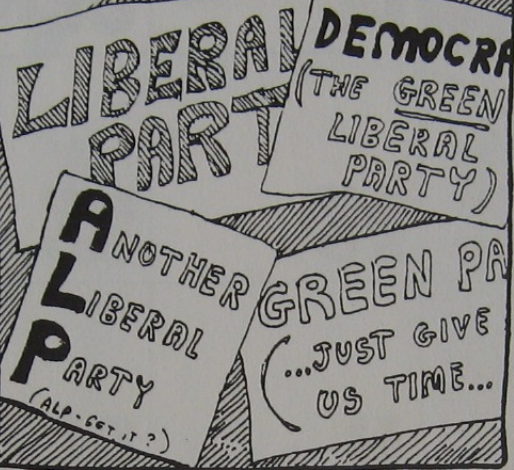 LIBERAL
PART
DEMOCRA
(THE GREEN
LIBERAL
PARTY)
ANOTHER
LIBERAL
PARTY
(ALP - GET IT?)
GREEN PA
(...JUST GIVE
US TIME...